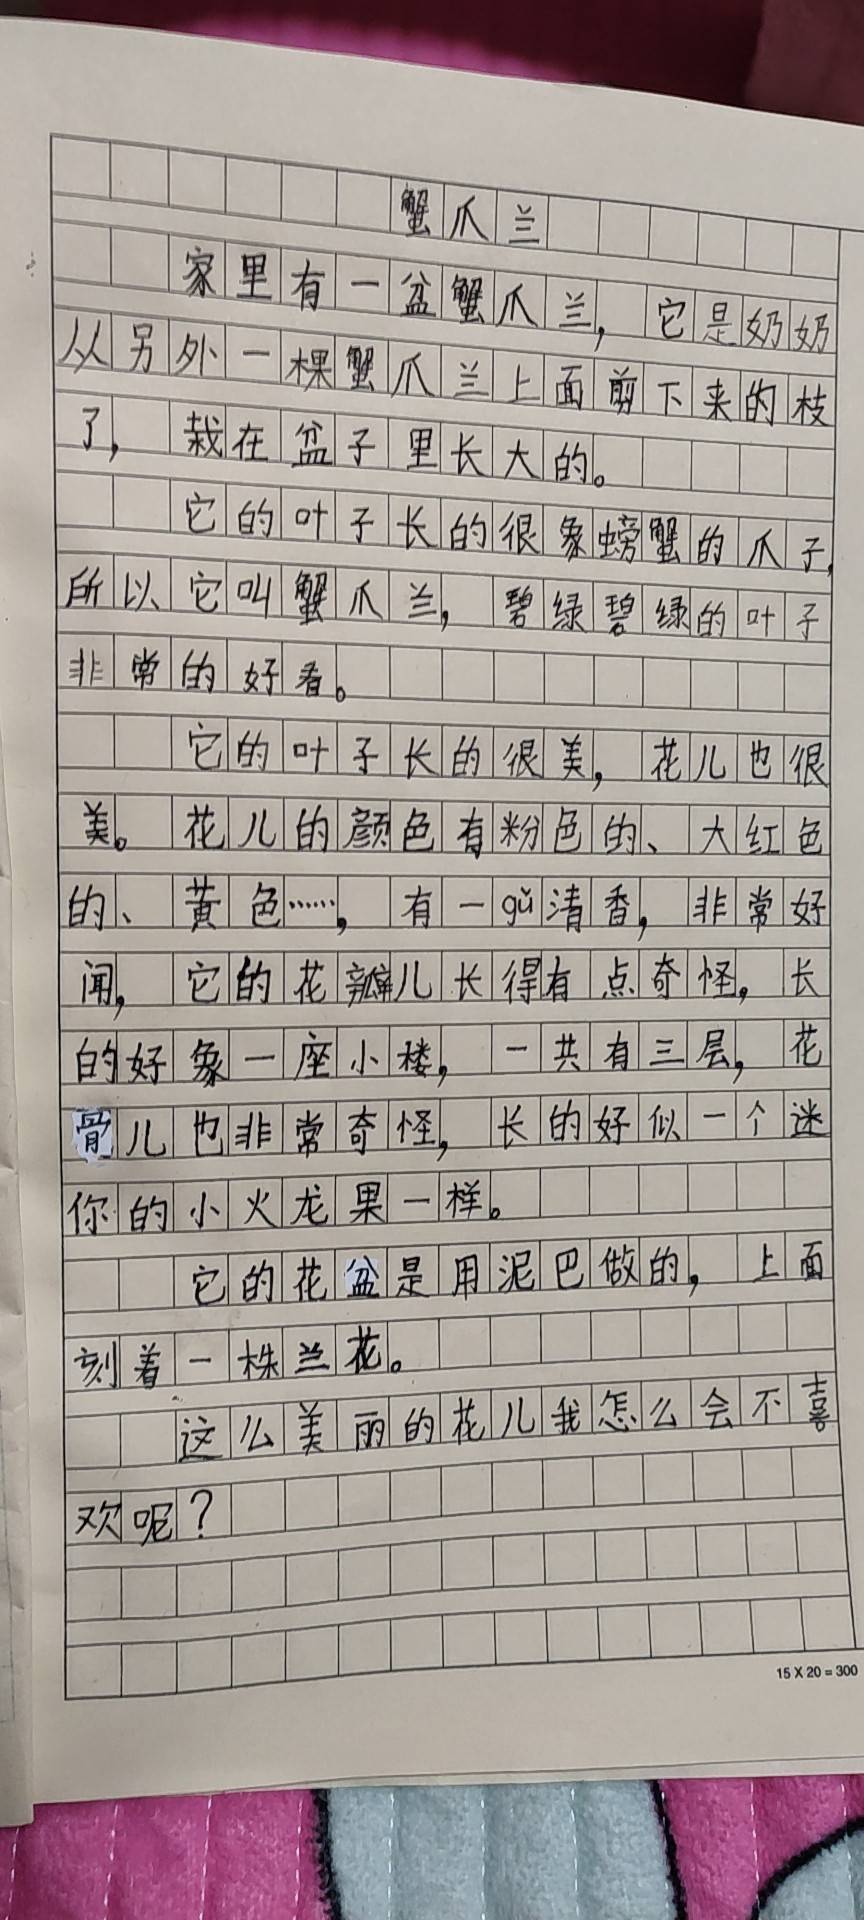 蟹爪兰
家里有一盆蟹爪兰，它是奶奶
从另外一棵蟹爪兰上面剪下来的枝
了，栽在盆子里长大的。
它的叶子长的很象螃蟹的爪子，
所以它叫蟹爪兰，碧绿碧绿的叶子
非常的好看。
它的叶子长的很美，花儿也很
美。花儿的颜色有粉色的、大红色
的、黄色……，有一gǔ清香，非常好
闻，它的花瓣儿长得有点奇怪，长
的好象一座小楼，一共有三层，花
骨儿也非常奇怪，长的好似一个迷
你的小火龙果一样。
它的花盆是用泥巴做的，上面
刻着一株兰花。
这么美丽的花儿我怎么会不喜
欢呢？
15 X 20 = 300